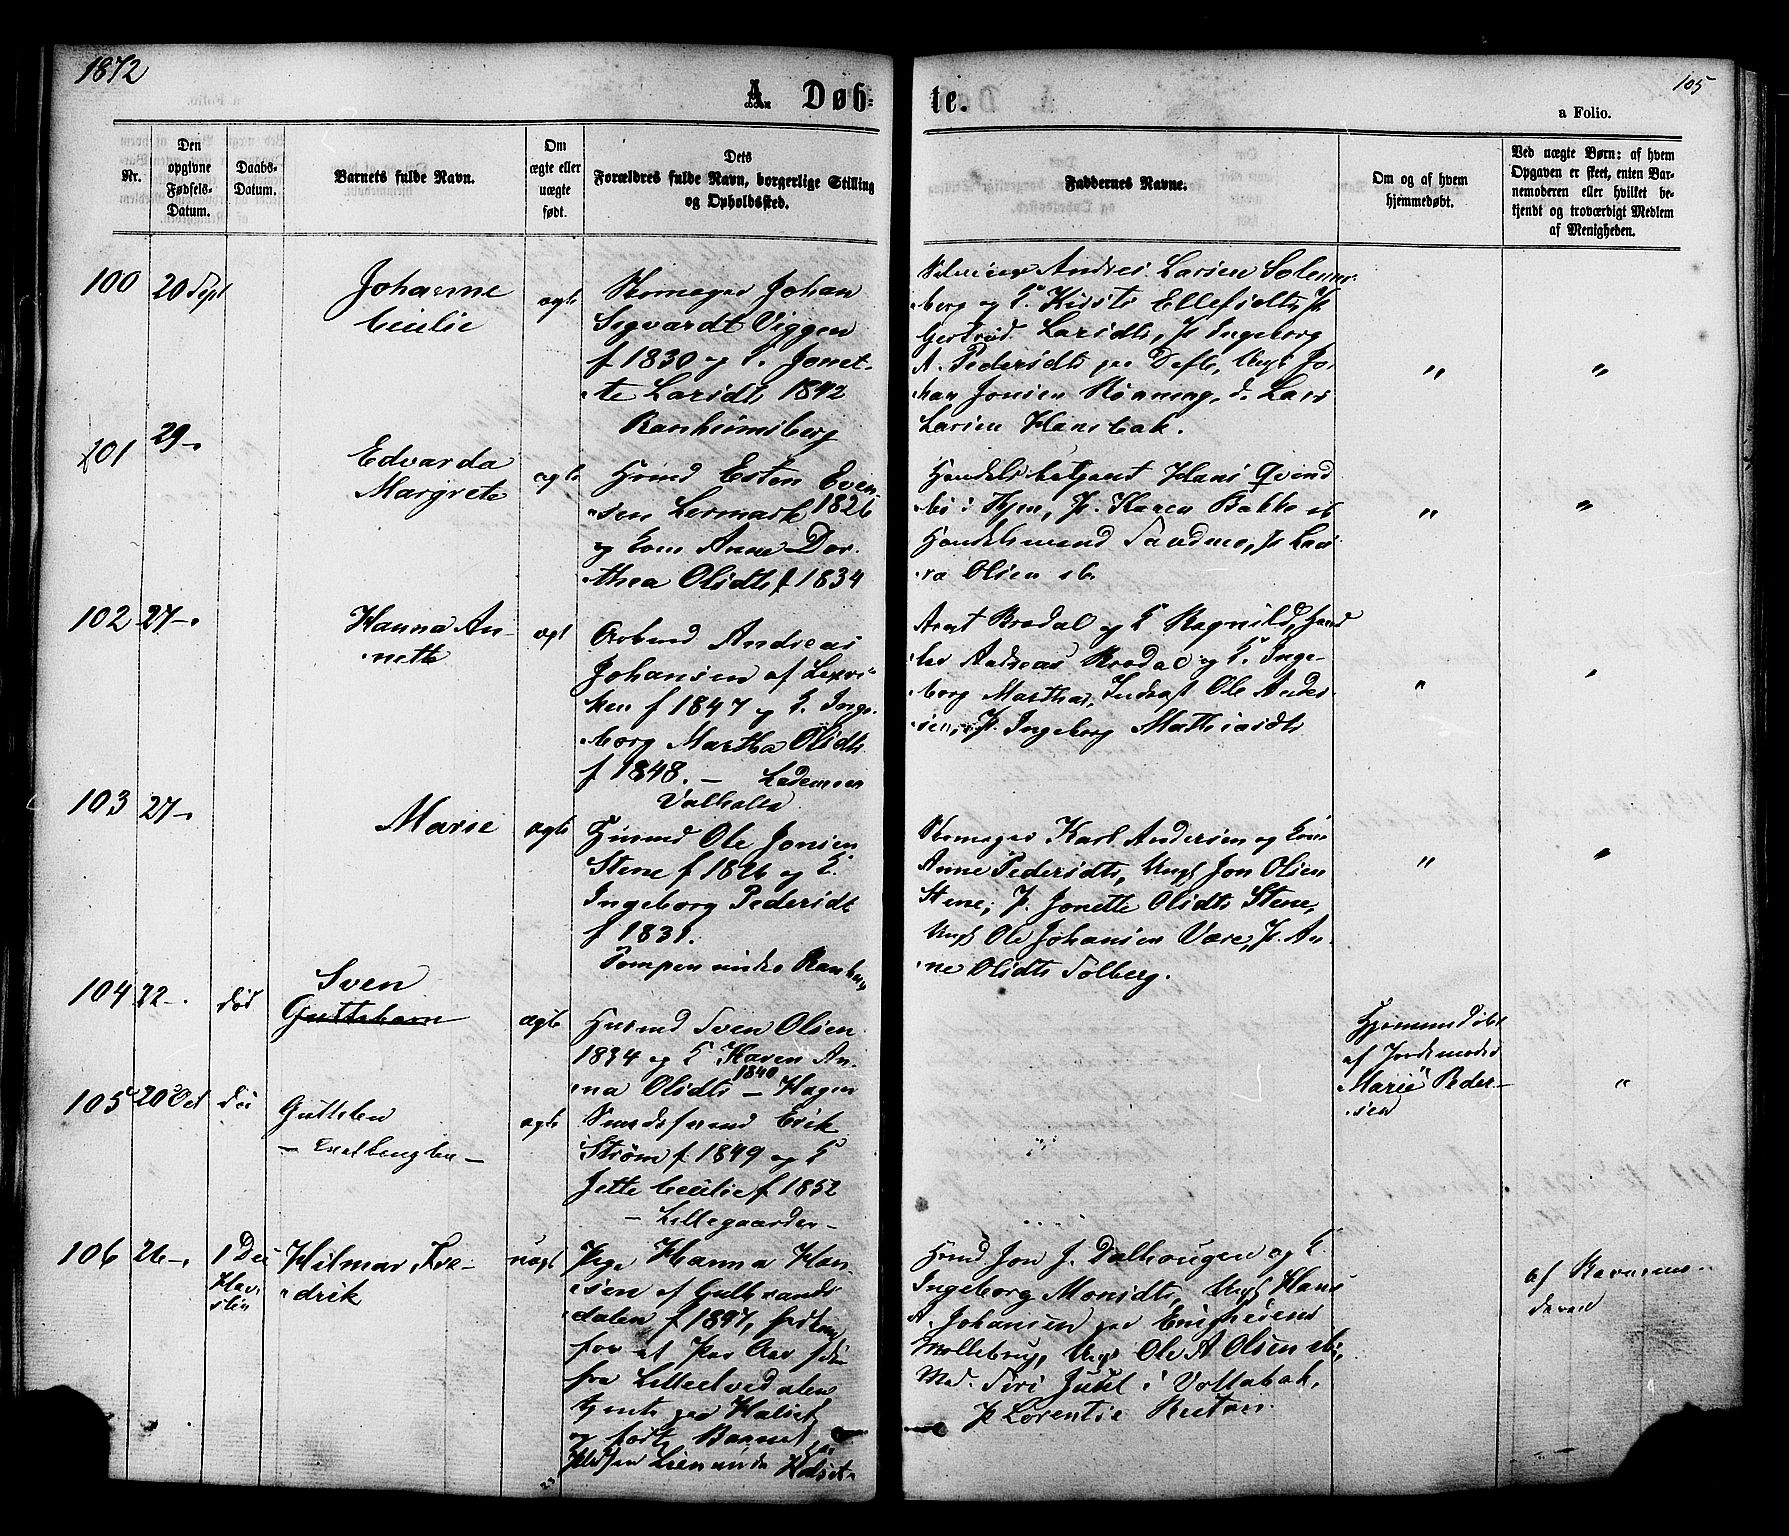 1872
A. Døb-
te.
105
a Folio.
Nr.
Den opgivne Fødsels-Datum.
Daabs-Datum.
Barnets fulde Navn.
Om ægte eller uægte født.
Dets
Forældres fulde Navn, borgerlige Stilling
og Opholdssted.
Faddernes Navne.
Om og af hvem
hjemmedøbt.
Ved uægte Børn: af hvem
Opgaven er skeet, enten Bar-
nemoderen eller hvilket be-
kjendt og troværdigt Medlem
af Menigheden.
100
20 Sept
Johanne
Cecilie
ægte
Skomager Johan
Sigvardt Viggen
f 1830 og K. Jonet-
te Larsdt 1842
Ranheimsberg
Andrea Larsen Solems-
berg og K. Kirsti Ellefsdtr, P.
Gertrud Larsdtr, P. Ingeborg
A. Pedersdtr paa Devle, Ungk Jo-
han Jonsen Rønning, d. Lars
Larsen Hansbak.
"
"
101
29 -
Edvarda
Margrete
ægte
Hmd Esten Even-
sen Lermark 1826
og Kone Anne Dor-
thea Olsdtr f 1834
Handelsbetjent Hans Qvind
i Byen, P. Karen Bakke ib
Handelsmand Sandmo, P. Lau-
ra Olsen ib.
"
"
102
27 -
Hanna An-
nette
ægt
Arbmd Andreas
Johansen af Lexvi-
ken f 1847 og K. Inge-
borg Martha Olsdtr
f 1848. - Lademoen
Valhalla
Arnt Brødal og K Ragnild,
Andreas Brødal og K. Inge-
borg Martha, Indraft Ole Ander-
sen, P. Ingeborg Mathiasdtr
"
"
103
27 -
Marie
ægte
Husmd Ole Jonsen
Stene f 1826 og K.
Ingeborg Pedersdt
f 1831.
Pompen under Ranheim
Skomager Karl Andersen og Kone
Anne Pedersdtr, Ungk Jon Olsen
Stene, P. Jonette Olsdtr Stene,
Ungk Ole Johansen Være, P. An-
ne Olsdtr Solberg.
"
"
104
22 -
død
Sven
Guttebarn
ægte
Husmd Sven Olsen
1834 og K Karen An-
na Olsdtr 1840 - Hagen
Hjemmedøbt
af Jordemoder
Marie Peder-
sen
"
105
20 Oct
død
Guttebn
ægte
Strøm f. 1849 og K
Jette Cecilie f 1852
- Lillegaarden -
106
26 -
1 Dec
Hilmar Fre-
drik
uægt
Pige Hanna Han-
sen af Gulbrands-
dalen f 1847,
for et Par Aar siden
fra Lilleelvedalen
tjente paa Halset
og født Barnet
under Halset
Hmd Jon J. Dalhougen og K.
Ingeborg Monsdtr, Ungk Hans
A. Johansen paa Enighedens
Møllebrug, Ungk Ole A Olsen ib,
Mad. Siri Juul i Voldabak,
P Lorentse Reitan.
af Barnemo-
deren